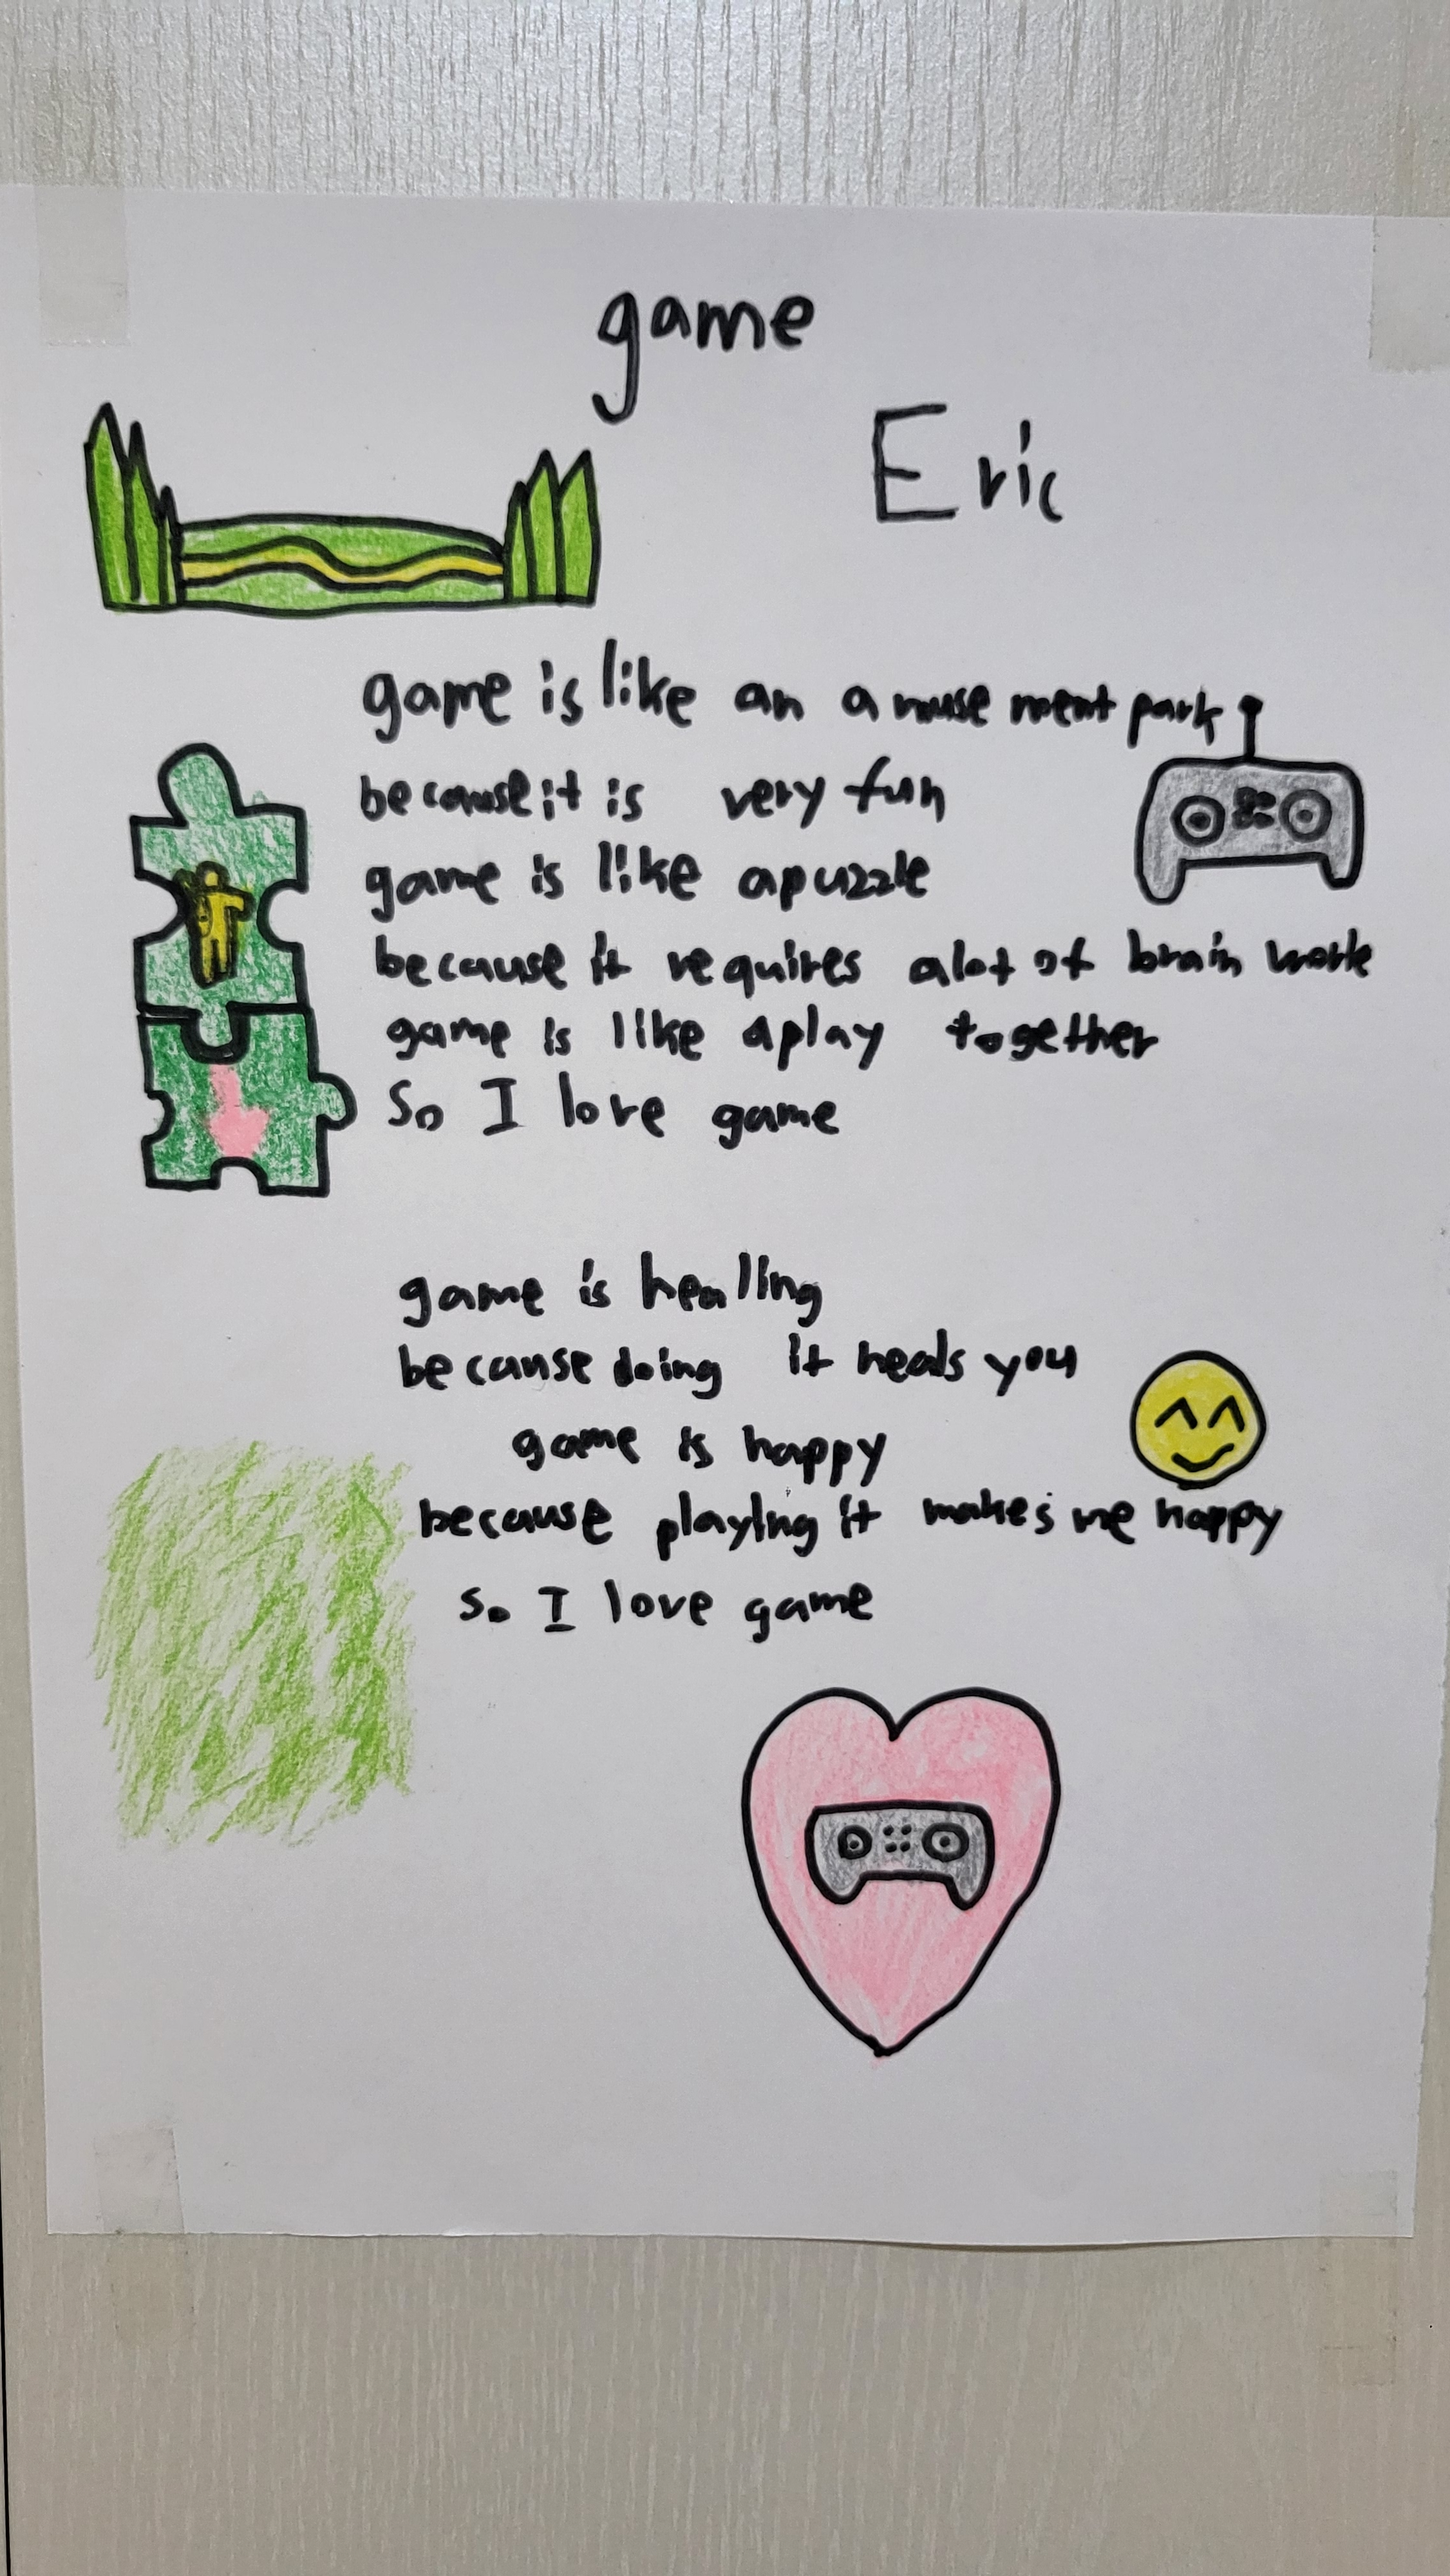 game
Eric
game is like an amusement park
because it is very fun
game is like a puzzle
because it requires alot of brain work
game is like a play together
So I love game
game is healing
because doing it heals you
game is happy
because playing it makes me happy
so I love game